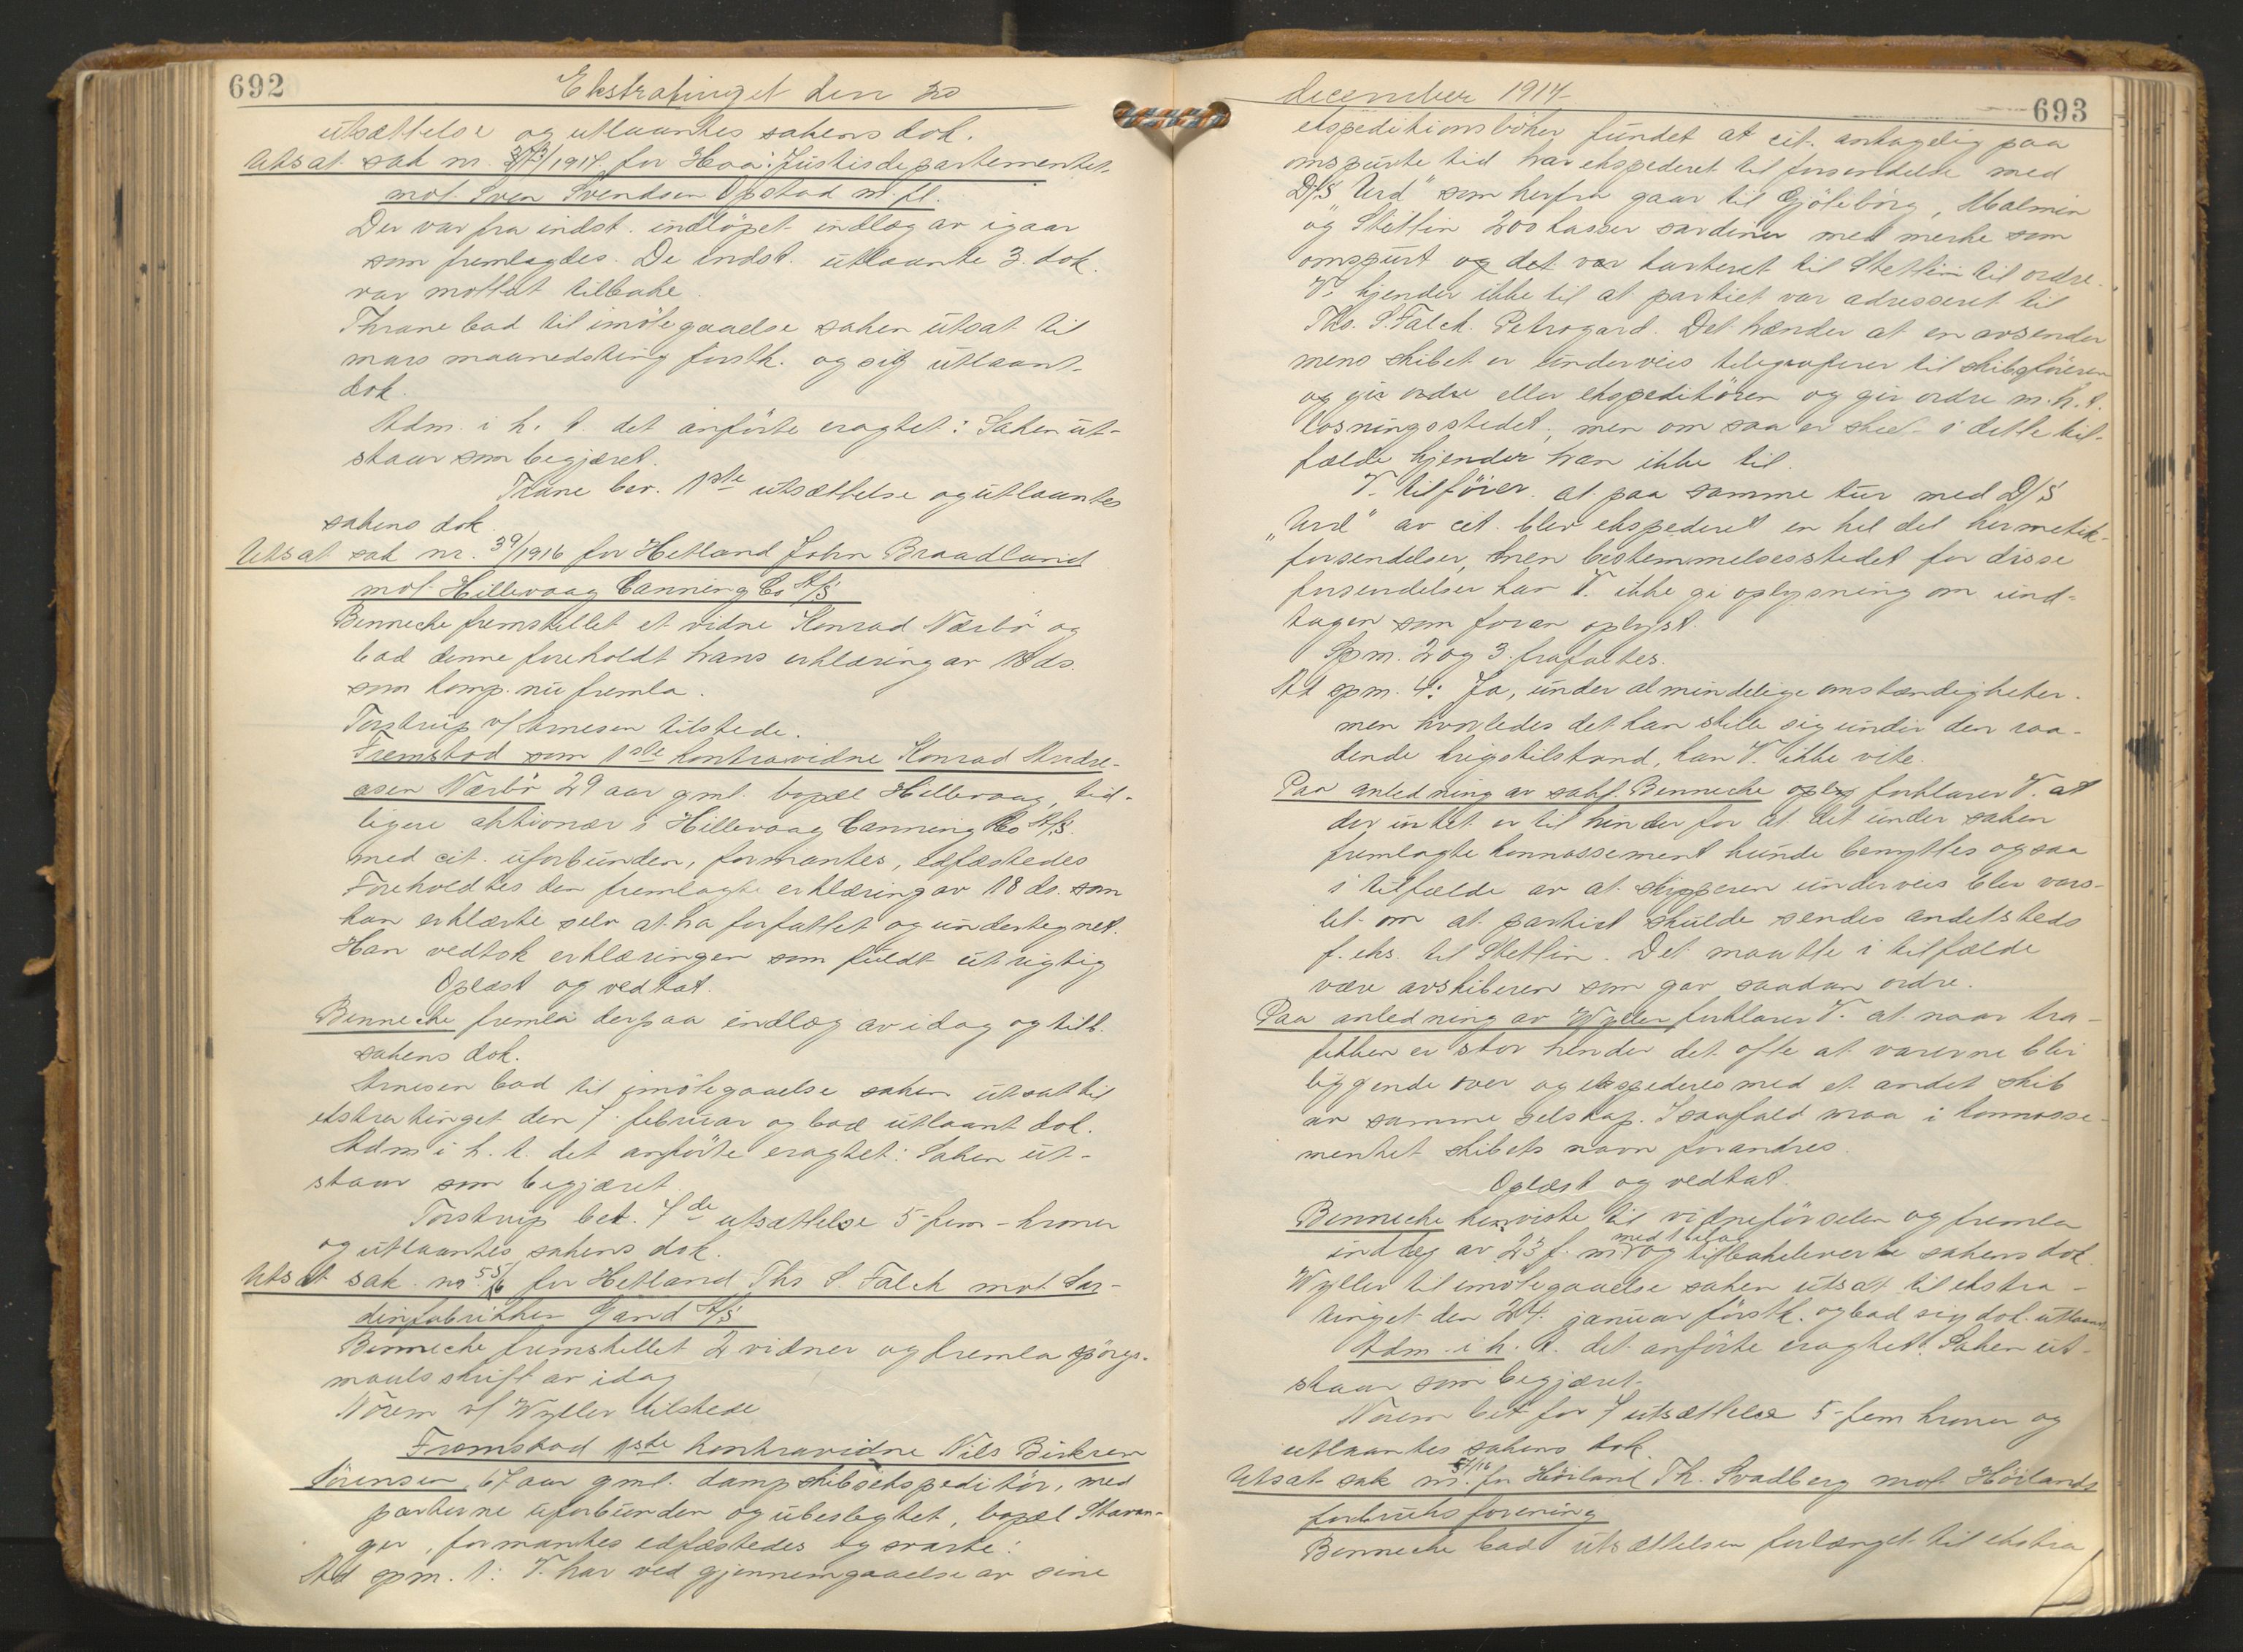 692
Ekstratinget den 20
utsættelse og utlaantes sakens dok.
Utsat sak nr. /1917 for Haa: Justisdepartementet
mot Sven Svendsen Opstad m. fl.
Der var fra indst. indløpet indlæg av igaar
som fremlagdes. De indst. utlaante 3. dok.
var mottat tilbake.
Thrane bad til imøtegaaelse saken utsat til
mars maanedsting førstk. og sig utlaant
dok.
Adm. i h. t. det anførte eragtet: Saken ut-
staar som begjæret.
Trane ber. 1ste utsættelse og utlaantes
sakens dok.
Utsat sak nr. 39/1916 for Hetland John Braadland
mot Hillevaag Canning Co A/S
Benneche fremstillet et vidne Konrad Nærbø og
bad denne foreholdt hans erklæring av 18 ds.
som komp. nu fremla.
Torstrup v/ Arnesen tilstede.
Fremstod som 1ste kontravidne Konrad Andre-
asen Nærbø 29 aar gml. bopæl Hillevaag, tid-
ligere aktionær i Hillevaag Canning Co A/S.
med cit. uforbunden, formantes, edfæstedes
Foreholdtes den fremlagte erklæring av 18 ds. som
han erklærte selv at ha forfattet og undertegnet.
Han vedtok erklæringen som fuldt ut rigtig
Oplæst og vedtat.
Bennecke fremla derpaa indlæg av idag og tilb.
sakens dok.
Arnesen bad til imøtegaaelse saken utsat til
ekstratinget den 7. februar og bad utlaant dok.
Adm i h. t. det anførte eragtet: Saken ut-
staar som begjæret.
Torstrup bet. 7de utsættelse 5-fem-kroner
og utlaantes sakens dok.
Utsat sak nr. 55/16 for Hetland Ths S. Falck mot Sar-
dinfabrikken Gand A/S
Bennecke fremstillet 2 vidner og fremla spørgs-
maalsskrift av idag
Norem v/ Wyller tilstede
Fremstod 1ste kontravidne Nils Birkrem
Sørensen, 67 aar gml. dampskibsekspeditør, med
parterne uforbunden og ubeslegtet, bopæl Stavan-
ger, formantes edfæstedes og svarte:
Ad spm. 1: V. har ved gjennemgaaelse av sine
december 1917
693
ekspeditionsbøker fundet at cit. antagelig paa
omspurte tid har ekspederet til forsendelse med
D/S "Urd" som herfra gaar til Gjøteborg, Malmin
og Stettin 200 kasser sardiner med merke som
omspurt og det var karteret til Stettin til ordre.
V. kjender ikke til at partiet var adresseret til
Ths. S. Falck. Petrogard. Det hænder at en avsender
mens skibet er underveis telegraferer til skibsføreren
og gir ordre eller ekspeditøren og gir ordre m. h. t.
losningsstedet, men om saa er skeet i dette til-
fælde kjender han ikke til.
V. tilføier at paa samme tur med D/S
"Urd" av cit. blev ekspederet en hel del hermetik-
forsendelser, men bestemmelsesstedet for disse
forsendelser kan V. ikke gi oplysning om und-
tagen som foran oplyst.
Spm. 2 og 3. frafaltes.
Ad spm. 4: Ja, under almindelige omstændigheter.
men hvorledes det kan stille sig under den raa-
dende krigstilstand, kan V. ikke vite.
Paa anledning av sakf. Bennecke oply forklarer V. at
der intet er til hinder for at det under saken
fremlagte konnossement kunde benyttes ogsaa
i tilfælde av at skipperen underveis blev vars-
let om at partiet skulde sendes andetsteds
f. eks. til Stettin. Det maatte i tilfælde
være avskiberen som gav saadan ordre.
Paa anledning av Wyller forklarer V. at naar tra-
fikken er stor hender det ofte at varerne blir
liggende over og ekspederes med et andet skib
av samme selskap. I saafald maa i konnosse-
mentet skibets navn forandres.
Oplæst og vedtat.
Bennecke henviste til vidneførselen og fremla
indlæg av 23 f. m. med 1 bilag og tilbakeleverte sakens dok.
Wyller til imøtegaaelse saken utsat til ekstra-
tinget den 24. januar førstk. og bad sig dok. utlaant
Adm. i h. t. det anførte eragtet: Saken ut-
staar som begjæret.
Norem bet for 7 utsættelse 5-fem kroner og
utlaantes sakens dok.
Utsat sak nr. /16 for Høiland Th. Svadberg mot Høilands
forbruksforening
Bennecke bad utsættelsen forlænget til ekstra